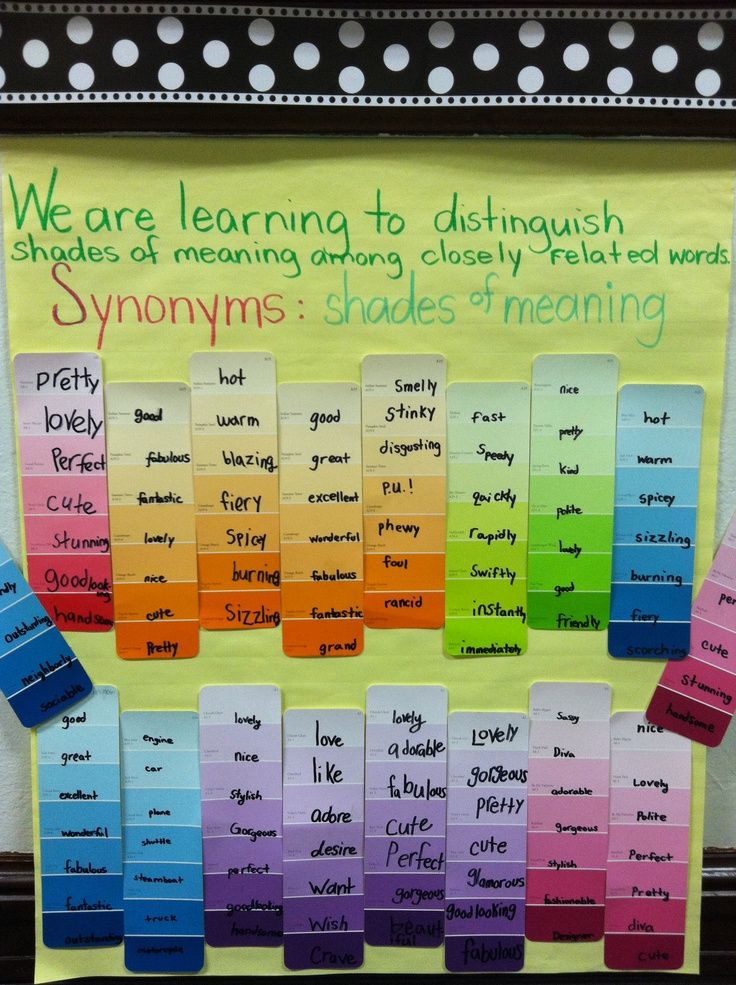 We are learning to distinguish
shades of meaning among closely related words.
Synonyms: shades of meaning
pretty
lovely
Perfect
cute
stunning
goodlooking
handsome
good
fabulous
fantastic
lovely
nice
cute
Pretty
hot
warm
blazing
fiery
Spicy
burning
Sizzling
good
great
excellent
wonderful
fabulous
fantastic
grand
Smelly
stinky
disgusting
P.U.!
phewy
foul
rancid
fast
Speedy
quickly
rapidly
Swiftly
instantly
immediately
nice
pretty
kind
polite
lovely
good
friendly
hot
warm
spicy
sizzling
burning
fiery
scorching
Outstanting
neighborly
sociable
cute
stunning
handsome
good
great
excellent
wonderful
fabulous
fantastic
outstanding
engine
car
plane
shuttle
steamboat
truck
motorcycle
lovely
nice
Stylish
Gorgeous
perfect
goodlooking
handsome
love
like
adore
desire
Want
Wish
Crave
lovely
adorable
fabulous
Cute
Perfect
gorgeous
beautiful
Lovely
gorgeous
pretty
cute
glamorous
goodlooking
fabulous
Sassy
Diva
adorable
gorgeous
Stylish
fashionable
Designer
nice
Lovely
Polite
Perfect
Pretty
diva
cute